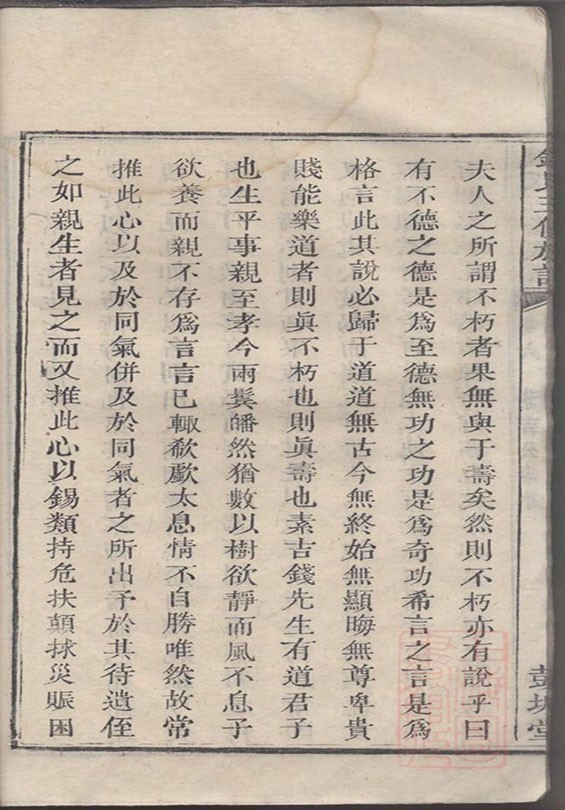 夫人之所謂不朽者果無與于壽矣然則不朽亦有說乎曰
有不德之德是為至德無功之功是為奇功希言之言是為
格言此其說必歸于道道無古今無終始無顯晦無尊卑貴
賤能樂道者則眞不朽也則眞壽也素吉錢先生有道君子
也生平事親至孝今兩鬓皤然猶數以樹欲靜而風不息子
欲養而親不存為言言已輙欷歔太息情不自勝唯然故常
推此心以及於同氣併及於同氣者之所出予於其待遺侄
之如親生者見之而又推此心以錫類持危扶顛捄災賑困